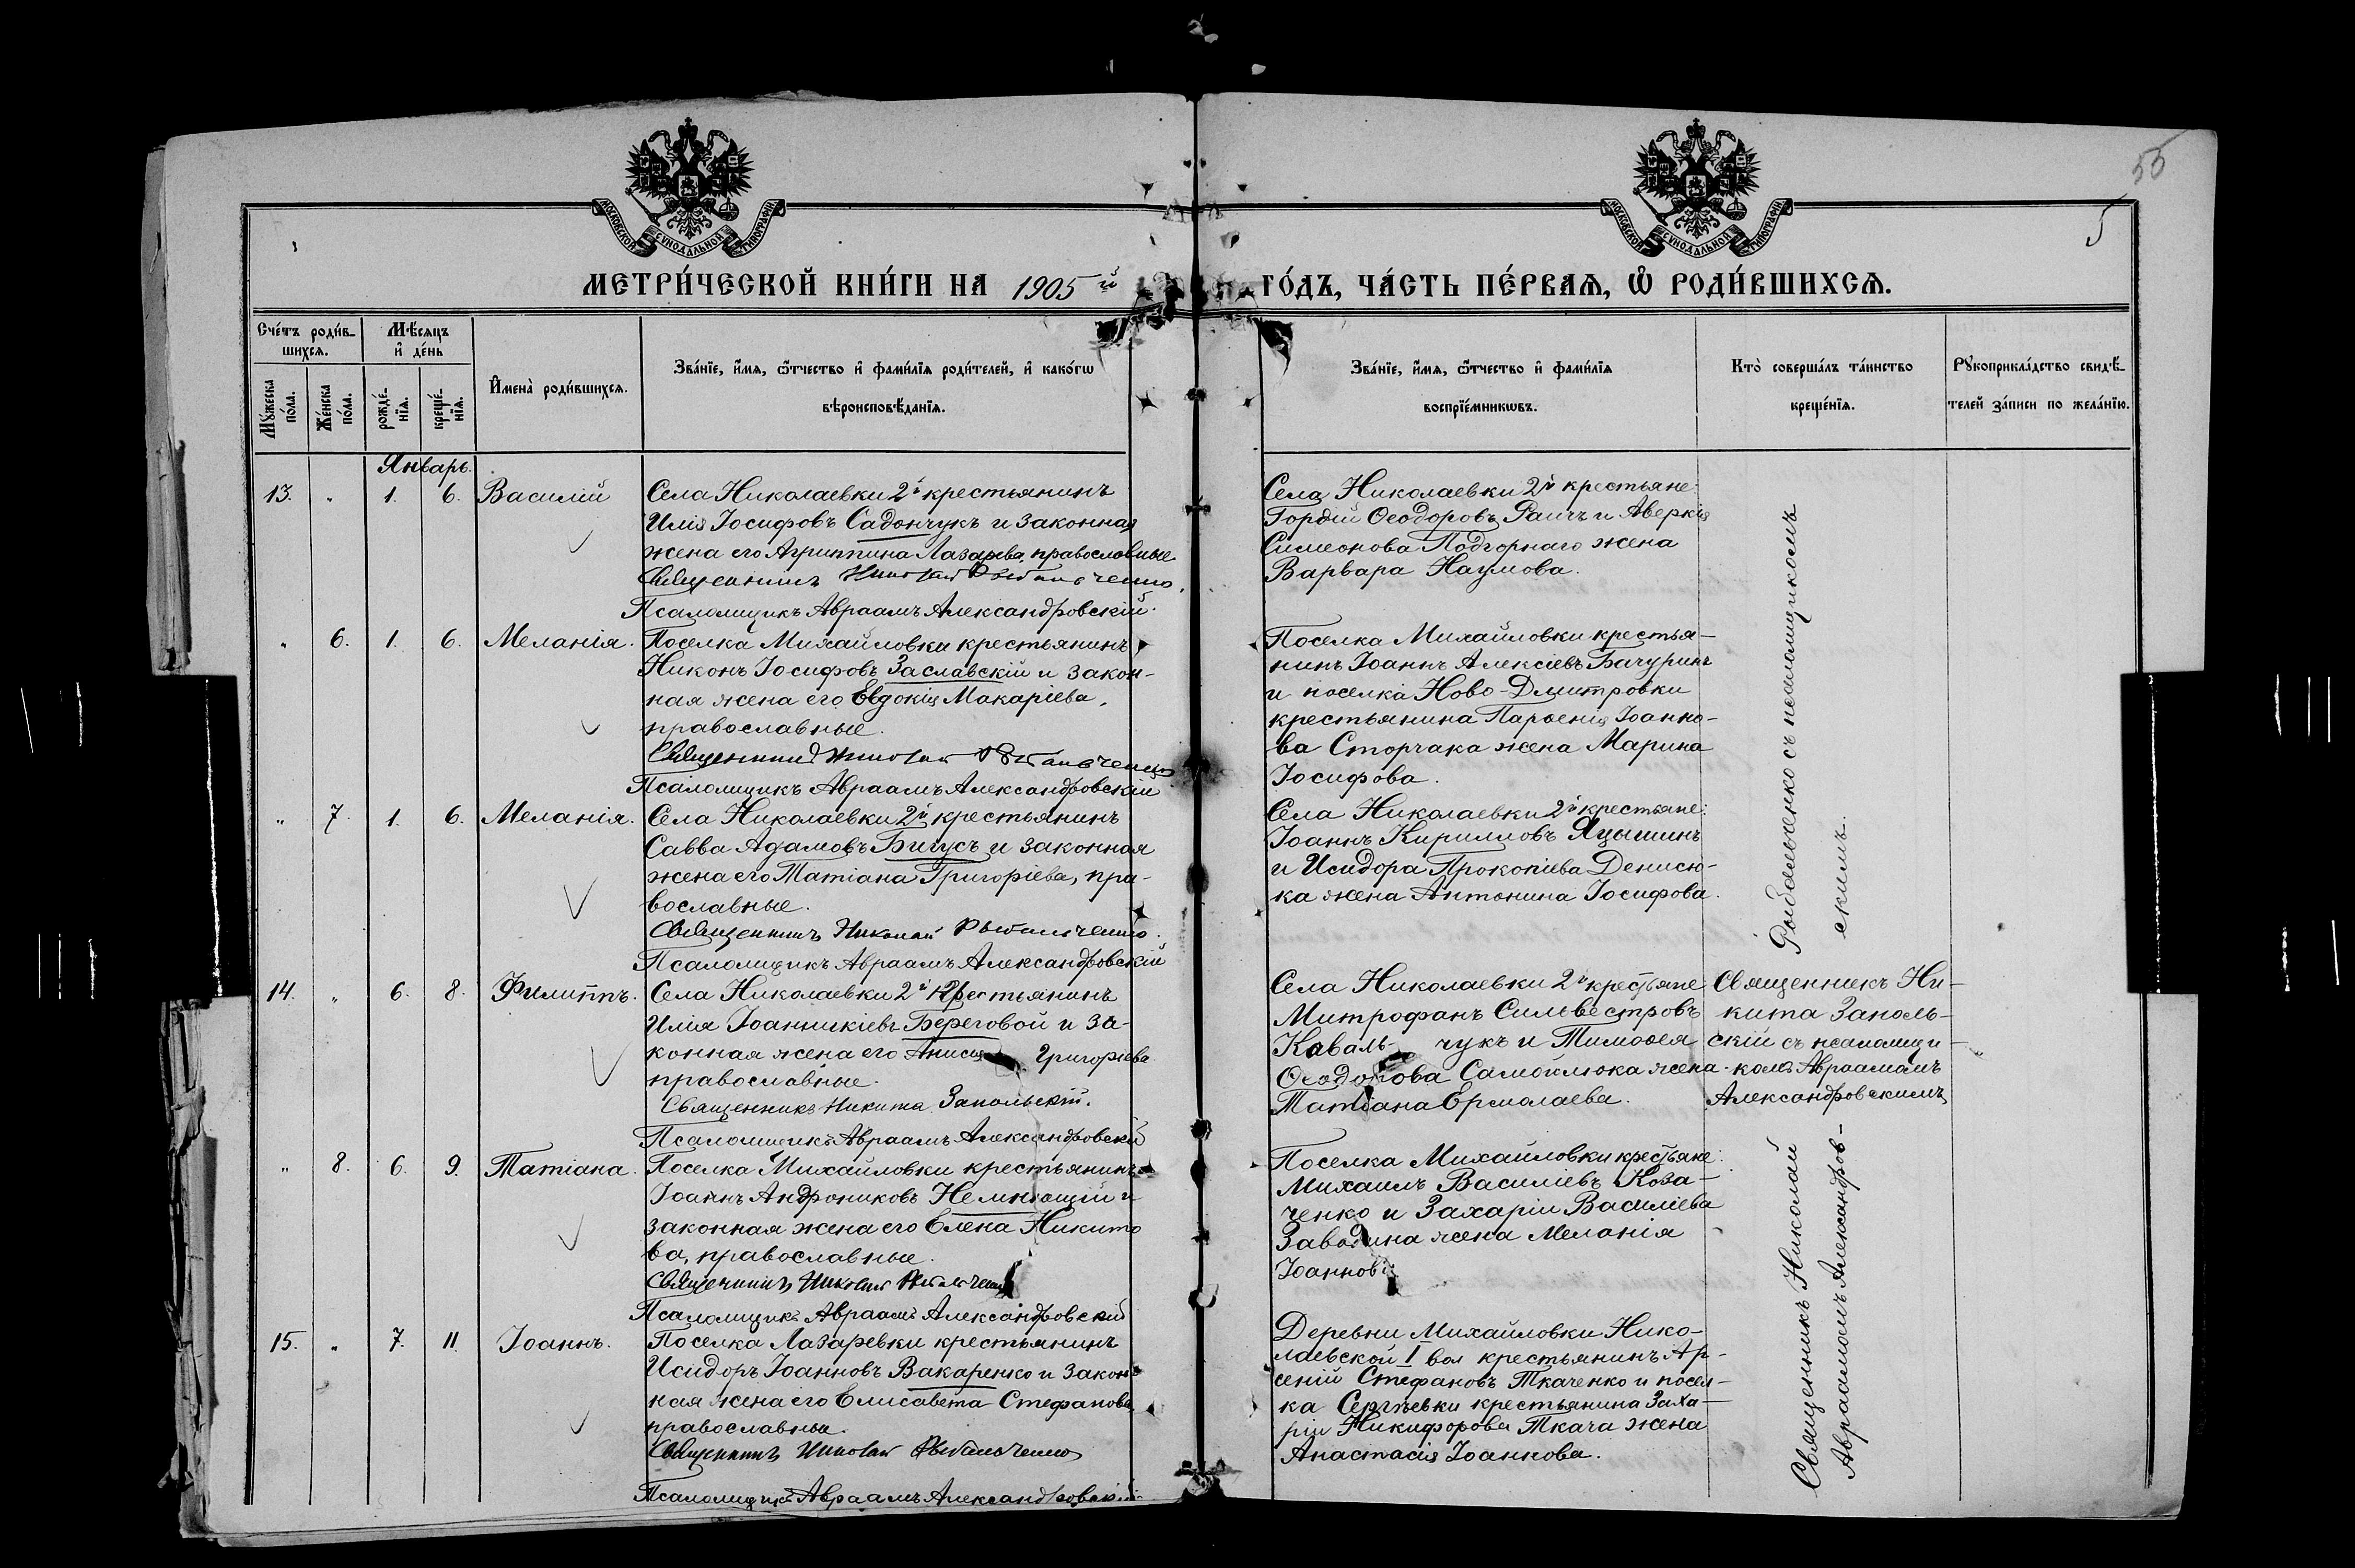 55
5
МОСКОВСКОЙ СѴНОДАЛЬНОЙ ТИПОГРАФІИ
МОСКОВСКОЙ СѴНОДАЛЬНОЙ ТИПОГРАФІИ
МЕТРИ́ЧЕСКОЙ КНИ́ГИ НА 1905й ГО́ДЪ, ЧА́СТЬ ПЕ́РВАѦ, Ѡ҆ РОДИ́ВШИХСѦ.
Сче́тъ роди́в-
шихсѧ.
Мѣ́сяцъ
и҆ де́нь
Мꙋ́жеска по́ла.
Же́нска по́ла.
рожде́-
нїѧ.
креще́-
нїѧ.
И҆мена̀ роди́вшихсѧ.
Зва́нїе, и҆́мѧ, ѻ҆́тчество и҆ фами́лїѧ роди́телей, и҆ како́гѡ
вѣроисповѣ́данїѧ.
Зва́нїе, и҆́мѧ, ѻ҆́тчество и҆ фами́лїѧ
воспрїе́мникѡвъ.
Кто̀ соверша́лъ та́инство
креще́нїѧ.
Рꙋкоприкла́дство свидѣ́-
телей за́писи по жела́нїю.
Январь.
13. " 1. 6. Василій
Села Николаевки 2й крестьянинъ
Илія Іосифовъ Садончукъ и законная
жена его Агриппина Лазарева, православные
Священникъ Николай Рыбальченко.
Псаломщикъ Авраамъ Александровскій.
Села Николаевки 2й крестьяне:
Гордій Ѳеодоровъ Раичъ и Аверкія
Симеонова Подгорнаго жена
Варвара Наумова.
" 6. 1. 6. Меланія.
Поселка Михайловки крестьянинъ
Никонъ Іосифовъ Заславскій и закон-
ная жена его Евдокія Макаріева,
православные.
Священникъ Николай Рыбальченко
Псаломщикъ Авраамъ Александровскій
Поселка Михайловки крестья-
нинъ Іоаннъ Алексіевъ Бачуринъ
и поселка Ново-Дмитровки
крестьянина Парѳенія Іоанно-
ва Сторчака жена Марина
Іосифова.
" 7. 1. 6. Меланія.
Села Николаевки 2й крестьянинъ
Савва Адамовъ Бигусъ и законная
жена его Татіана Григоріева, пра-
вославные.
Священникъ Николай Рыбальченко.
Псаломщикъ Авраамъ Александровскій
Села Николаевки 2й крестьяне:
Іоаннъ Кирилловъ Яцышинъ
и Исидора Прокопіева Денисю-
ка жена Антонина Іосифова.
Рыбальченко съ псаломщикомъ
скимъ.
14. " 6. 8. Филиппъ.
Села Николаевки 2й крестьянинъ
Илія Іоанникіевъ Береговой и за-
конная жена его Анисія Григоріева
православные.
Священникъ Никита Запольскій.
Псаломщикъ Авраамъ Александровскій
Села Николаевки 2й крестьяне
Митрофанъ Сильвестровъ
Коваль- чукъ и Тимоѳея
Ѳеодорова Самойлюка жена
Татіана Ермолаева.
Священникъ Ни-
кита Заполь-
скій съ псаломщи-
комъ Авраамомъ
Александровскимъ
" 8. 6. 9. Татіана.
Поселка Михайловки крестьянинъ
Іоаннъ Андрониковъ Немнющій и
законная жена его Елена Никито
ва, православные.
Священникъ Николай Рыбальченко
Псаломщикъ Авраамъ Александровскій
Поселка Михайловки крестьяне:
Михаилъ Василіевъ Коза-
ченко и Захаріи Василіева
Заводина жена Меланія
Іоаннова
15. " 7. 11. Іоаннъ.
Поселка Лазаревки крестьянинъ
Исидоръ Іоанновъ Вакаренко и закон-
ная жена его Елисавета Стефанова
православные.
Священникъ Николай Рыбальченко
Псаломщикъ Авраамъ Александровскій
Деревни Михайловки Нико-
лаевской I вол крестьянинъ Ар-
сеній Стефановъ Ткаченко и посел-
ка Сергѣевки крестьянина Заха-
ріи Никифорова Ткача жена
Анастасія Іоаннова.
Священникъ Николай
Авраамомъ Александров-